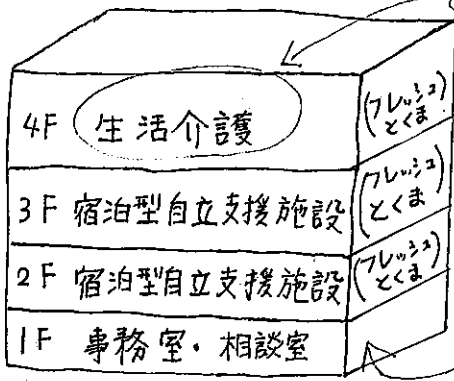 4F 生活介護
(フレッシュ
とくま)
3F 宿泊型自立支援施設
(フレッシュ
とくま)
2F 宿泊型自立支援施設
(フレッシュ
とくま)
1F 事務室・相談室